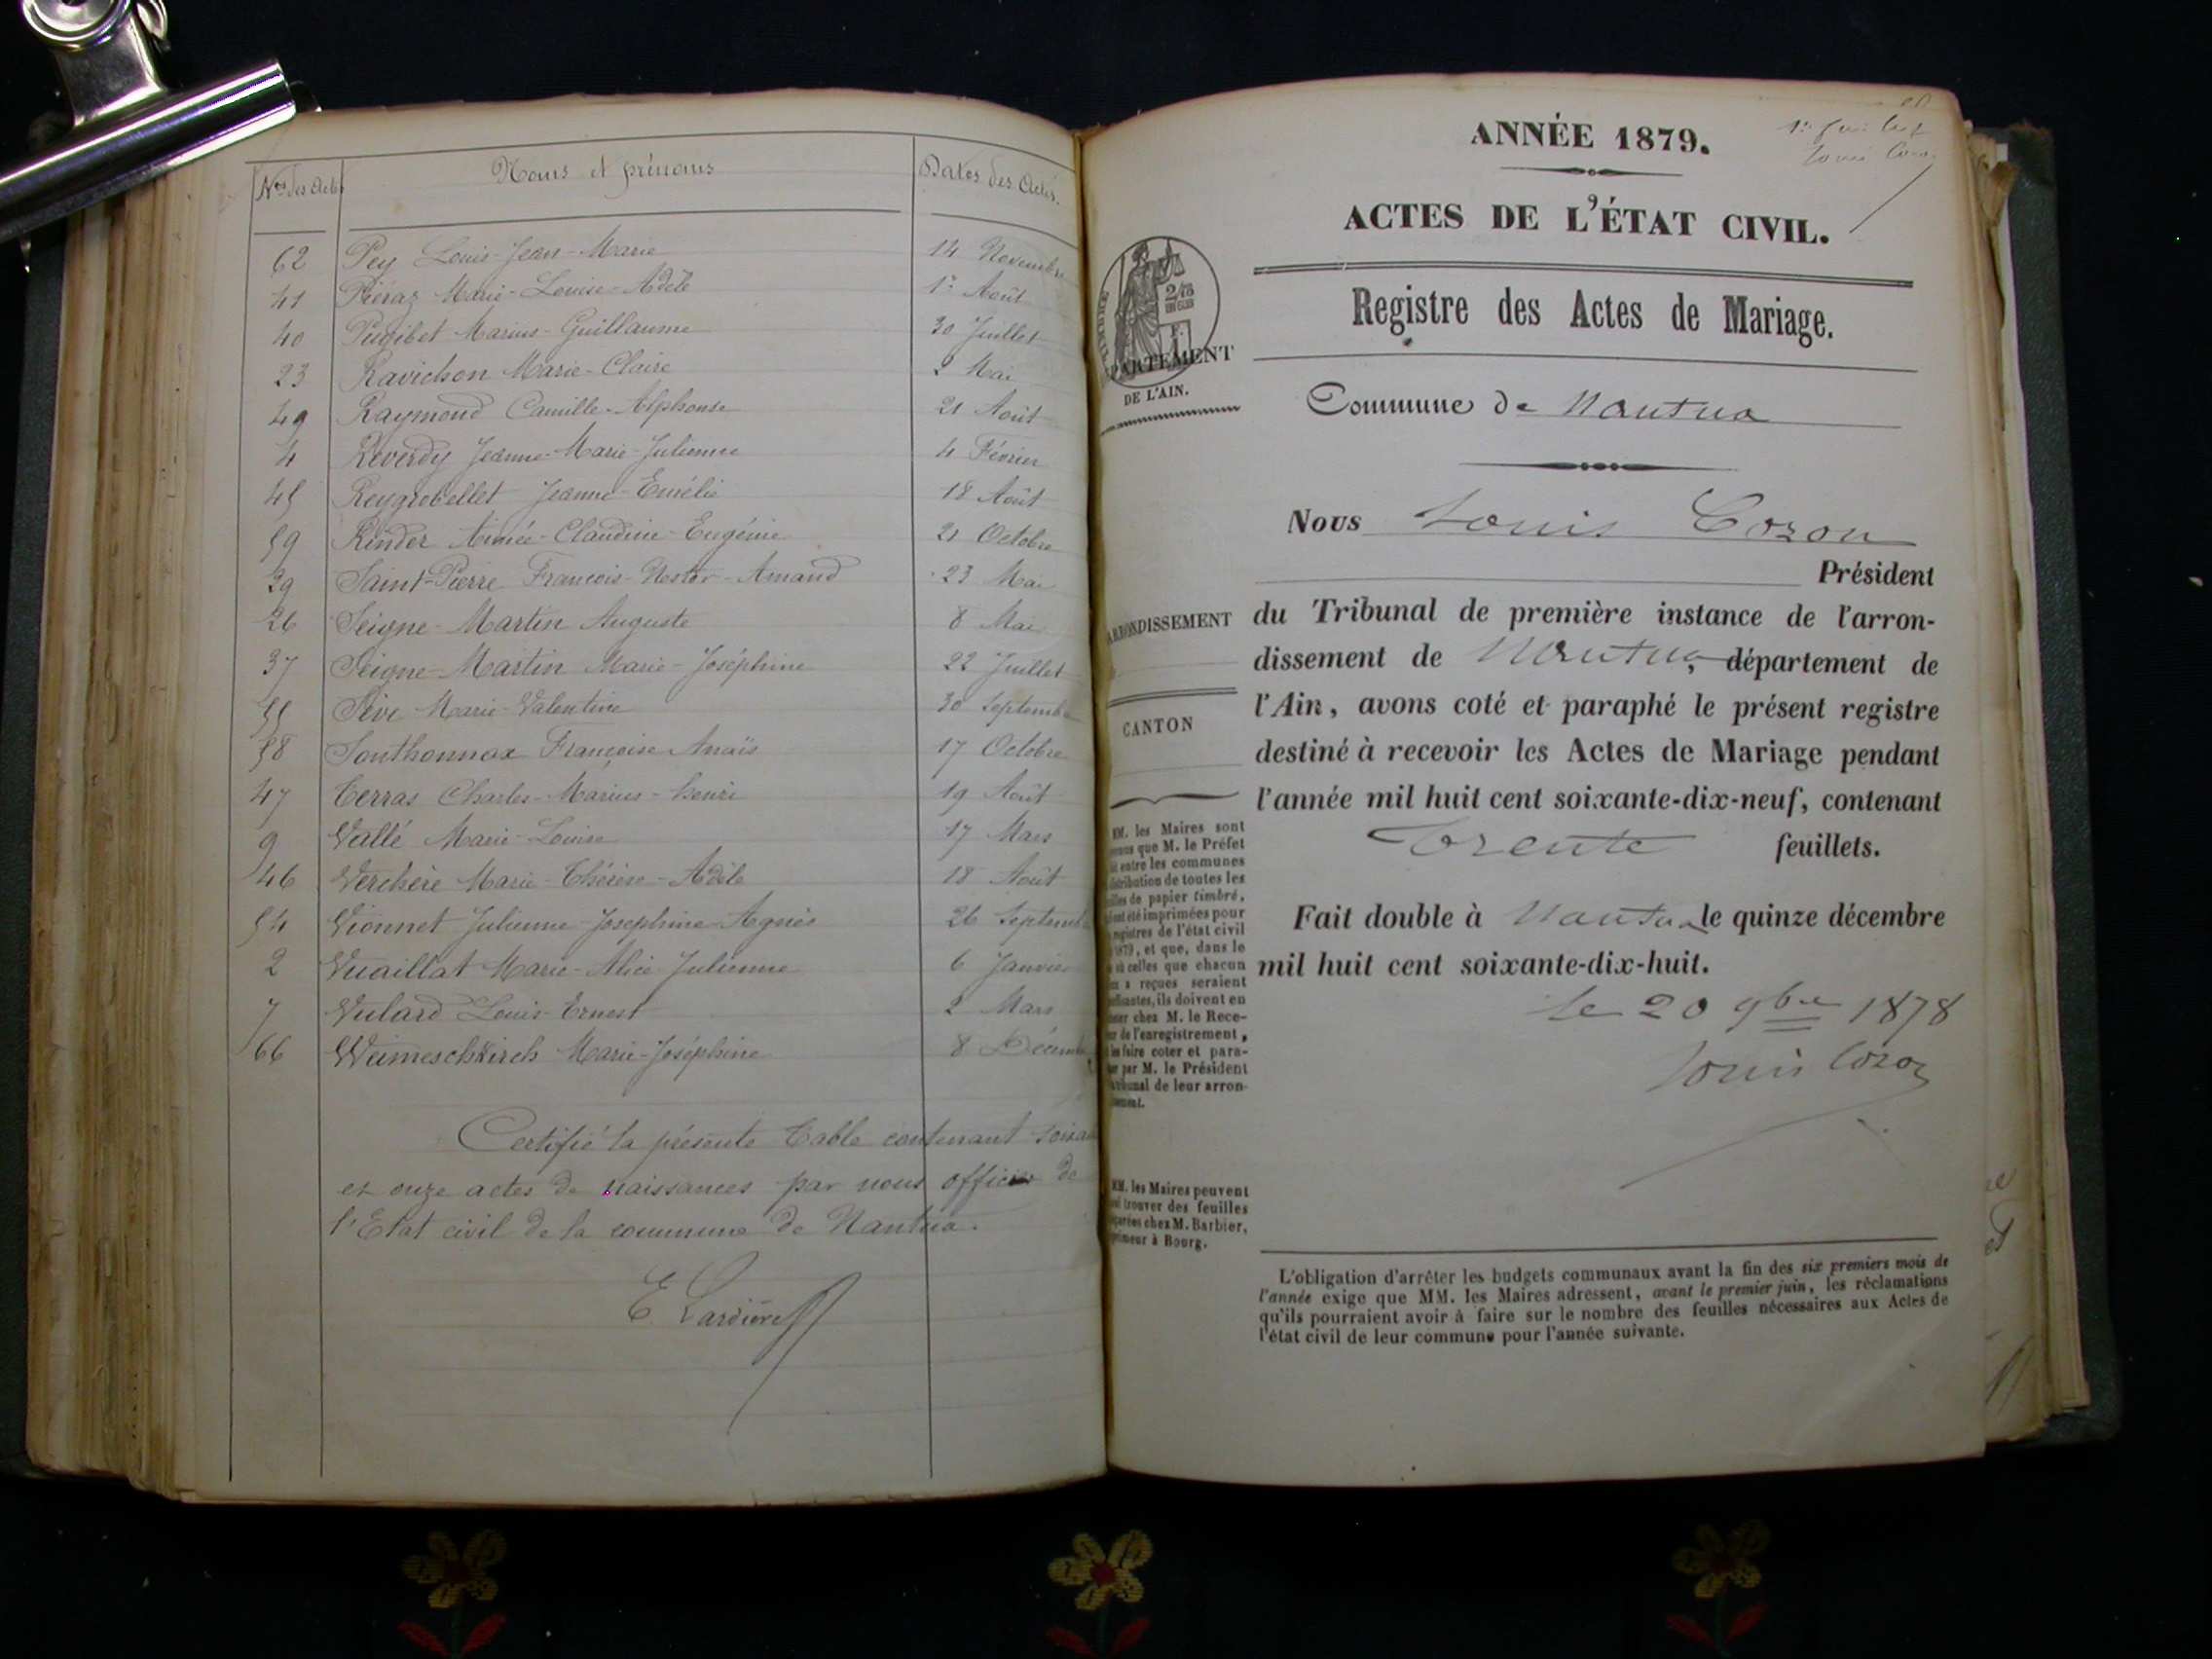 Nos des Actes Noms et prénoms Dates des Actes.
62 Pey Louis-Jean-Marie 14 Novembre
41 Piéraz Marie-Louise-Adèle 1er Août
40 Pugibet Marius-Guillaume 30 Juillet
23 Ravichon Marie-Claire 2 Mai
49 Raymond Camille-Alphonse 21 Août
4 Reverdy Jeanne-Marie-Julienne 4 Février
45 Reygrobellet Jeanne-Emélie 18 Août
59 Rinder Aimée-Claudine-Eugénie 21 Octobre
29 Saint-Pierre François-Nestor-Amand 23 Mai
26 Seigne-Martin Auguste 8 Mai
37 Seigne-Martin Marie-Joséphine 22 Juillet
55 Sève Marie-Valentine 30 Septembre
58 Sonthonnax Françoise Anaïs 17 Octobre
47 Terras Charles-Marius-henri 19 Août
9 Vallé Marie-Louise 17 Mars
46 Verchère Marie-Thérèse-Adèle 18 Août
54 Vionnet Julienne-Josephine-Agnès 26 Septemb
2 Vuaillat Marie-Alice-Julienne 6 Janvier
7 Vulard Louis-Ernest 2 Mars
66 Weimeschkirch Marie-Joséphine 8 Décemb
Certifié la présente Table contenant soixan
et onze actes de naissances par nous officier de
l'Etat civil de la commune de Nantua.
E Lardière
1er feuillet
Louis Cozon
ANNÉE 1879.
ACTES DE L'ÉTAT CIVIL.
Registre des Actes de Mariage.
PARTEMENT
DE L'AIN.
Commune de Nantua
Nous Louis Cozon
Président
du Tribunal de première instance de l'arron-
dissement de Nantua, département de
l'Ain, avons coté et paraphé le présent registre
destiné à recevoir les Actes de Mariage pendant
l'année mil huit cent soixante-dix-neuf, contenant
trente feuillets.
Fait double à Nantua le quinze décembre
mil huit cent soixante-dix-huit.
le 20 9bre 1878
Louis Cozon
ARRONDISSEMENT
CANTON
MM. les Maires sont
que M. le Préfet
entre les communes
distribution de toutes les
de papier timbré,
ont été imprimées pour
registres de l'état civil
1879, et que, dans le
où celles que chacun
a reçues seraient
ils doivent en
chez M. le Rece-
de l'enregistrement,
les faire coter et para-
par M. le Président
tribunal de leur arron-
MM. les Maires peuvent
trouver des feuilles
chez M. Barbier,
à Bourg.
L'obligation d'arrêter les budgets communaux avant la fin des six premiers mois de
l'année exige que MM. les Maires adressent, avant le premier juin, les réclamations
qu'ils pourraient avoir à faire sur le nombre des feuilles nécessaires aux Actes de
l'état civil de leur commune pour l'année suivante.